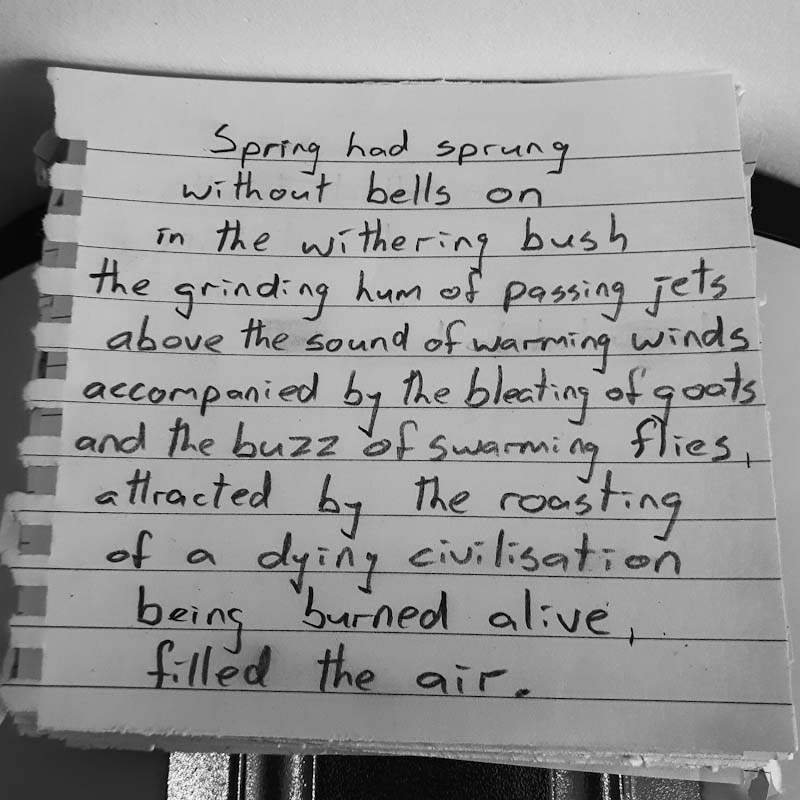 Spring had sprung
without bells on
in the withering bush
the grinding hum of passing jets
above the sound of warming winds
accompanied by the bleating of goats
and the buzz of swarming flies,
attracted by the roasting
of a dying civilisation
being burned alive,
filled the air.